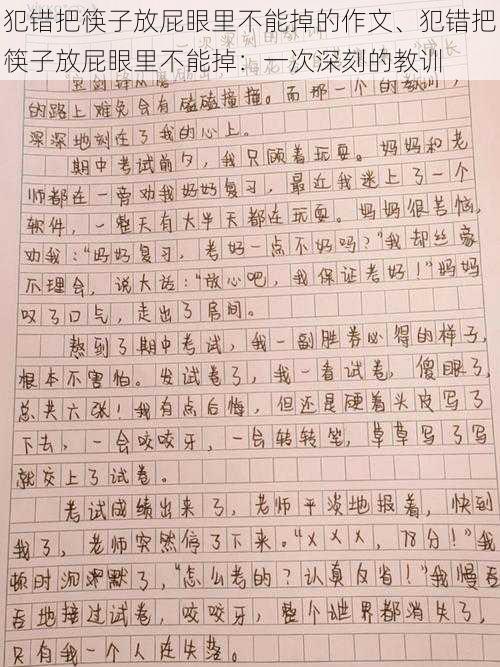 犯错把筷子放屁眼里不能掉的作文、犯错把
筷子放屁眼里不能掉：一次深刻的教训
一次深刻的教训
的路上难免会有磕磕撞撞。而那一个的教训，
深深地刻在了我的心上。
期中考试前夕，我只顾着玩耍。妈妈和老
师都在一旁劝我好好复习，最近我迷上了一个
软件，一整天有大半天都在玩耍。妈妈很苦恼，
劝我："好好复习，考好一点不好吗？"我却丝毫
不理会，说大话："放心吧，我保证考好！"妈妈
叹了口气，走出了房间。
熬到了期中考试，我一副胜券必得的样子，
根本不害怕。发试卷了，我一看试卷，傻眼了，
总共六张！我有点后悔，但还是硬着头皮写了
下去，一会咬咬牙，一会转转笔，草草写了写
就交上了试卷。
考试成绩出来了，老师平淡地报着，快到
我了，老师突然停了下来。"×××，78分！"我
顿时沉默了，"怎么考的？认真反省！"我慢吞
吞地接过试卷，咬咬牙，整个世界都消失了，
只有我一个人在失落。